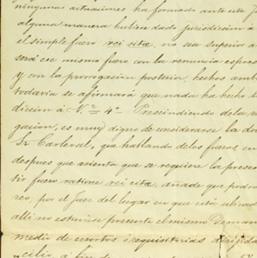 ningunas actuaciones ha formado ante este J
alguna manera hubiera dado jurisdiccion á
el simple fuero rei sitæ, no sea superior a
será ese mismo fuero con la renuncia espres
y con la prorrogacion posterior, hechos amb
todavia se afirmará que nada ha hecho
diccion á N.º 4.º Prescindiendo de la
gacion, es muy digno de considerarse la do
Sr. Carleval, que hablando de los fueros en
despues que asienta que se requiere la prese
tir fuero ratione rei sitæ, añade que pod
reo, por el Juez del lugar en que está ubicad
alli no estuviese presente el mismo Deman
medio de exortos ó requisitorias dirijida